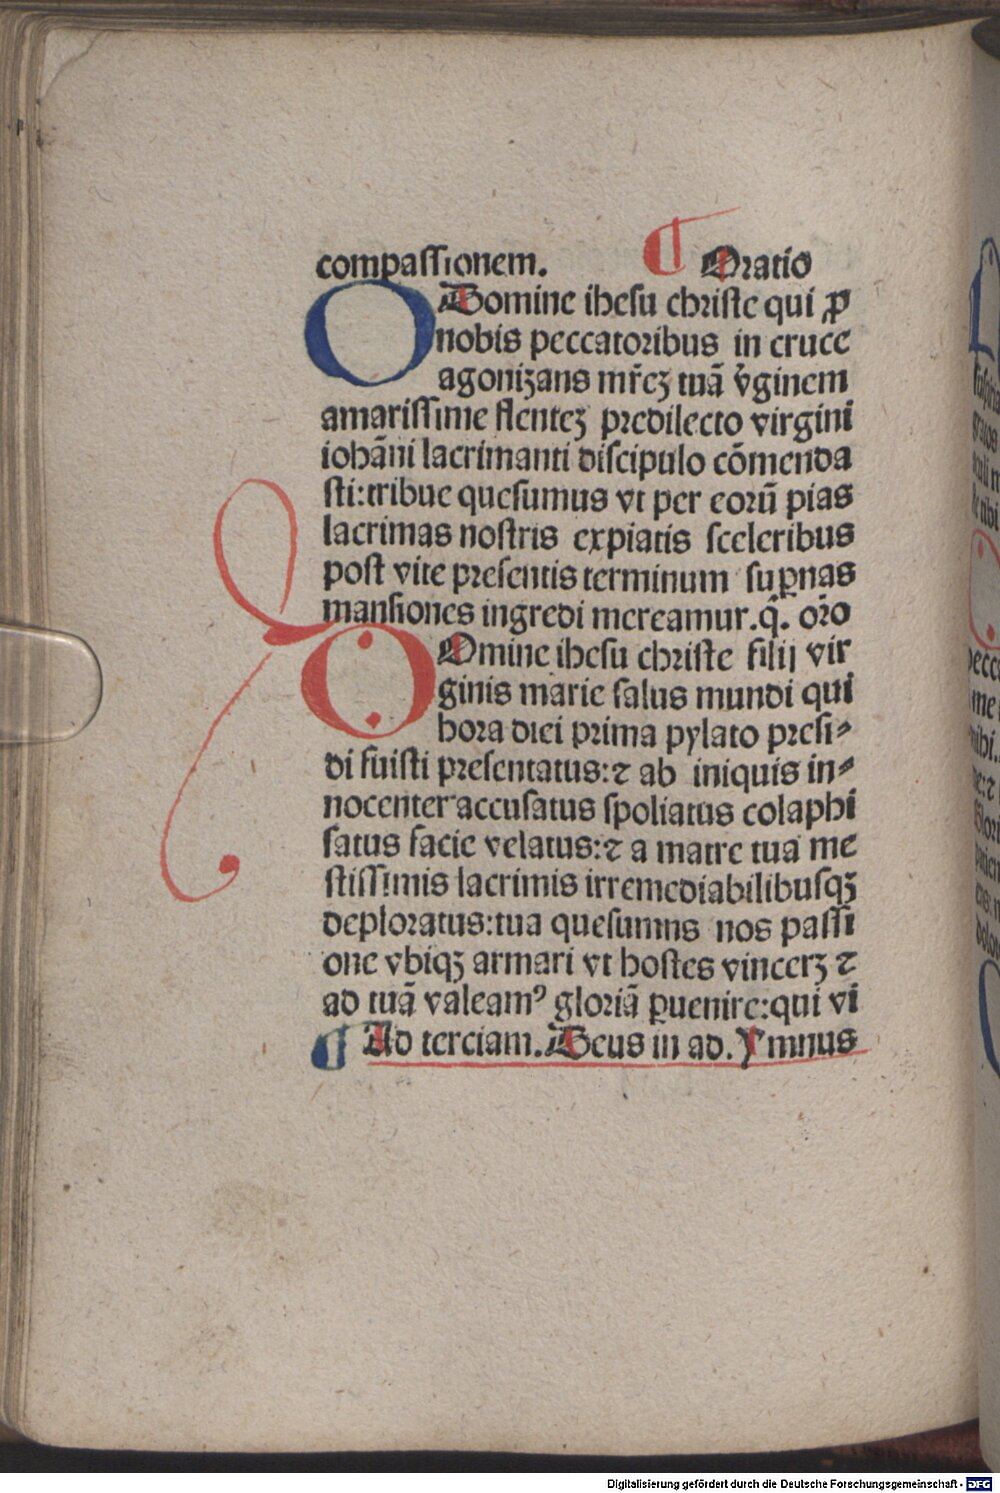 compaſſionem. ¶ Oratio
O Domine iheſu chriſte qui ꝓ
nobis peccatoribus in cruce
agoniʒans mr̄eʒ tuā v̓ginem
amariſſime flenteʒ predilecto virgini
iohāni lacrimanti diſcipulo cōmenda
ſti:tribue queſumus vt per eorū pias
lacrimas noſtris expiatis ſceleribus
poſt vite preſentis terminum ſuꝑnas
manſiones ingredi mereamur.q̄. or̄o
DOmine iheſu chriſte filij vir
ginis marie ſalus mundi qui
hora diei prima pylato preſi⸗
di fuiſti preſentatus:⁊ ab iniquis in⸗
nocenter accuſatus ſpoliatus colaphi
ſatus facie velatus:⁊ a matre tua me
ſtiſſimis lacrimis irremediabilibuſqʒ
deploratus:tua queſumns nos paſſi
one vbiqʒ armari vt hoſtes vincerʒ ⁊
ad tuā valeamꝰ gloriā ꝑuenire:qui vi
¶ Ad terciam. Deus in ad. Ymnus
Digitalisierung gefördert durch die Deutsche Forschungsgemeinschaft - DFG